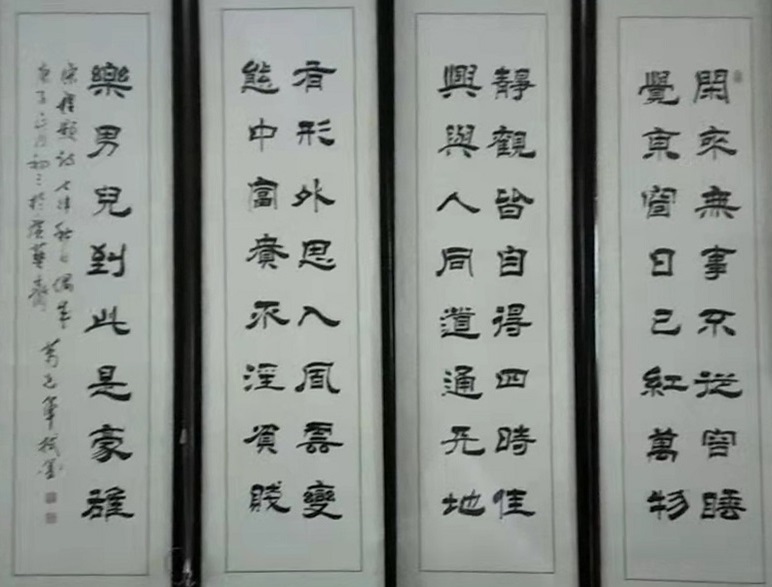 閑來無事不從容睡
覺東窗日已紅萬物
靜觀皆自得四時佳
興與人同道通天地
有形外思入風雲變
態中富貴不淫貧賤
樂男兒到此是豪雄
宋程顥詩七律秋日偶成
庚子正月初三於